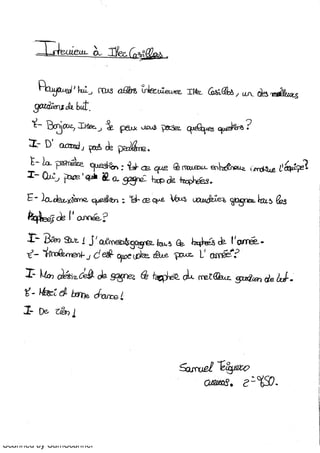 Interview à Iker Casillas.
Aujourd'hui, nous allons interviewer Iker Casillas, un des meilleurs
gardiens de but.
E- Bonjour, Iker, je peux vous poser quelques questions?
I- D'accord, pas de problème.
E- La première question: Est ce que le nouveau entraîneur motive l'équipe?
I- Oui, parce qu'il a gagné trop de trophées.
E- La deuxième question: Est ce que vous voudriez gagner tous les
trophées de l'année?
I- Bien sur! J'aimerais gagner tous les trophées de l'année.
E- Finalement, c'est quoi votre rêve pour L'année?
I- Mon désir c'est de gagner le trophée du meilleur gardien de but.
E- Merci et bonne chance!
I- De rien!
Samuel
2º ESO.